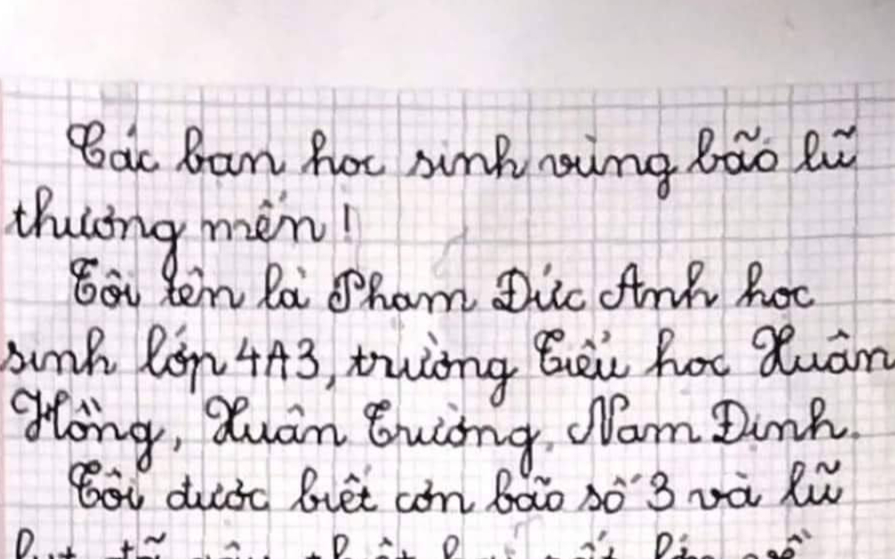 Các bạn học sinh vùng bão lũ
thương mến!
Tôi tên là Phạm Đức Anh học
sinh lớp 4A3, trường Tiểu học Xuân
Hồng, Xuân Trường, Nam Định.
Tôi được biết cơn bão số 3 và lũ